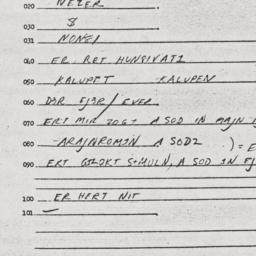 020 NEZER
8
030
031 NONEI
040 ER. RRT HUNSIVATI
050 KALUPET KALUPEN
060 D3R EJ3R / EVER
070 ERT MIR ZOG+ A SOD IN MAJN
080 -ARAJNROM3N A SOD2 ) = E
090 ERT GIZOKT S+MULN, A SOD IN EJ
100 ER HERT NIT
101 —